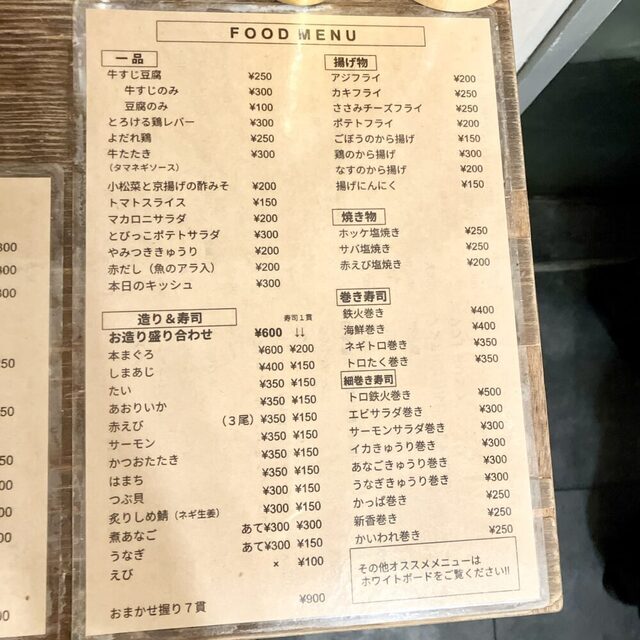 FOOD MENU
一品
牛すじ豆腐 ¥250
牛すじのみ ¥300
豆腐のみ ¥100
とろける鶏レバー ¥300
よだれ鶏 ¥250
牛たたき ¥300
（タマネギソース）
小松菜と京揚げの酢みそ ¥200
トマトスライス ¥150
マカロニサラダ ¥200
とびっこポテトサラダ ¥300
やみつききゅうり ¥200
赤だし（魚のアラ入） ¥200
本日のキッシュ ¥300
造り＆寿司 寿司１貫
お造り盛り合わせ ¥600 ↓↓
本まぐろ ¥600 ¥200
しまあじ ¥400 ¥150
たい ¥350 ¥150
あおりいか ¥350 ¥150
赤えび （３尾）¥350 ¥150
サーモン ¥350 ¥150
かつおたたき ¥350 ¥150
はまち ¥350 ¥150
つぶ貝 ¥300 ¥150
炙りしめ鯖（ネギ生姜） ¥300 ¥150
煮あなご あて¥300 ¥300
うなぎ あて¥300 ¥150
えび × ¥100
おまかせ握り７貫 ¥900
揚げ物
アジフライ ¥200
カキフライ ¥250
ささみチーズフライ ¥250
ポテトフライ ¥200
ごぼうのから揚げ ¥150
鶏のから揚げ ¥300
なすのから揚げ ¥200
揚げにんにく ¥150
焼き物
ホッケ塩焼き ¥250
サバ塩焼き ¥250
赤えび塩焼き ¥200
巻き寿司
鉄火巻き ¥400
海鮮巻き ¥400
ネギトロ巻き ¥350
トロたく巻き ¥350
細巻き寿司
トロ鉄火巻き ¥500
エビサラダ巻き ¥300
サーモンサラダ巻き ¥300
イカきゅうり巻き ¥300
あなごきゅうり巻き ¥300
うなぎきゅうり巻き ¥300
かっぱ巻き ¥250
新香巻き ¥250
かいわれ巻き ¥250
その他オススメメニューは
ホワイトボードをご覧ください!!